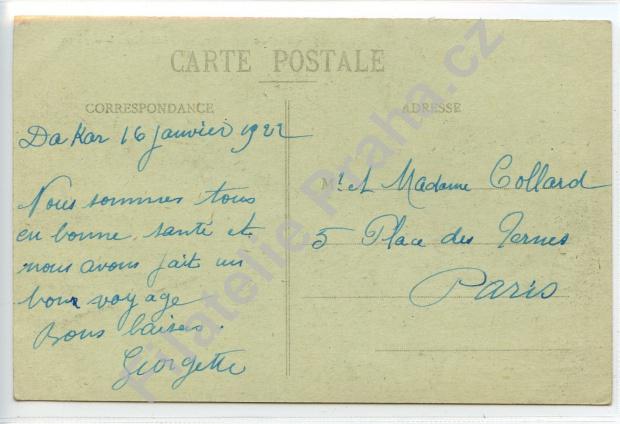 CARTE POSTALE
CORRESPONDANCE
ADRESSE
Dakar 16 janvier 1922
Nous sommes tous
en bonne santé et
nous avons fait un
bon voyage
Bons baisers.
Georgette
Mr et Madame Collard
5 Place des Ternes
Paris
Filatelie Praha.cz